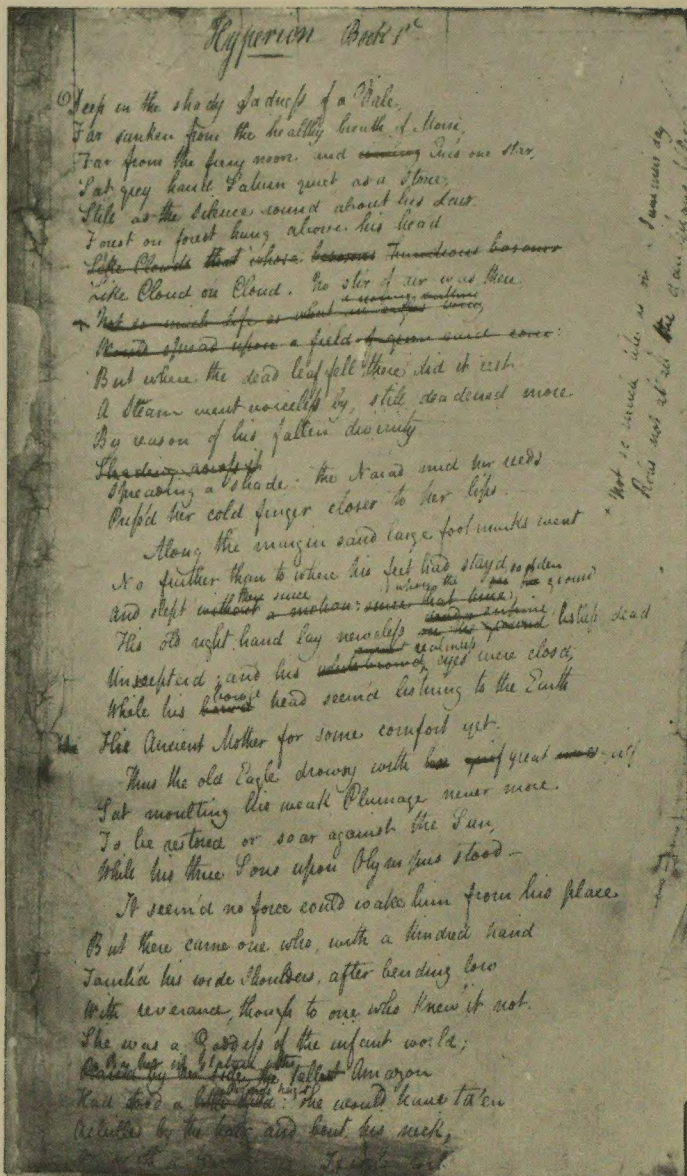 Hyperion Book 1st
Deep in the shady sadness of a Vale,
Far sunken from the healthy breath of Morn,
Far from the fiery noon and evening Eve's one star,
Sat grey hair'd Saturn quiet as a stone,
Still as the Silence round about his Lair.
Forest on forest hung above his head
Like Clouds that whose bosoms thundrous bosoms
Like Cloud on Cloud. No stir of air was there
Not so much life as what
Would spread upon a field of green eared corn:
But where the dead leaf fell there did it rest.
A Stream went voiceless by, still deadened more
By reason of his fallen divinity
Spreading a shade: the Naiad mid her reeds
Press'd her cold finger closer to her lips.
Along the margin sand large footmarks went
No further than to where his feet had stay'd,
there since the sodden ground
And slept without a motion: since that time
His old right hand lay nerveless on the ground listless dead
realmless
Unsceptred; and his white brow'd eyes were clos'd;
bow'd
While his head seem'd listning to the Earth
His Ancient Mother for some comfort yet.
Thus the old Eagle drowsy with great
Sat moulting his weak Plumage never more
To be restored or soar against the Sun,
While his three Sons upon Olympus stood—
It seem'd no force could wake him from his place
But there came one who, with a kindred hand
Touch'd his wide Shoulders, after bending low
With reverance, though to one who knew it not.
She was a Goddess of the infant world;
By her in Stature the tallest Amazon
Had stood a she would have ta'en
Achilles by the hair and bent his neck,
Not so much life as on a Summer's day
Robs not at all the dandelion's fleece